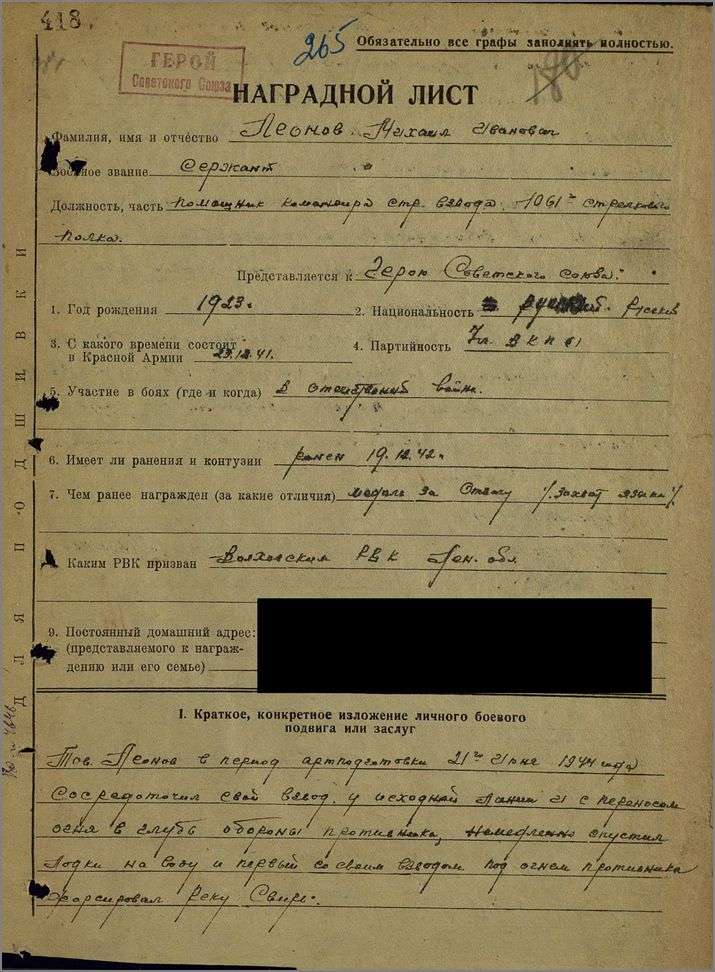 418.
265
Обязательно все графы заполнять полностью.
ГЕРОЙ
Советского Союза
НАГРАДНОЙ ЛИСТ
Фамилия, имя и отчество Леонов Михаил Иванович
Военное звание Сержант
Должность, часть помощник командира стр. взвода 1061го стрелкового
полка.
Представляется к Герою Советского Союза.
1. Год рождения 1923г.
2. Национальность русский. Русский
3. С какого времени состоит
в Красной Армии 23.12.41.
4. Партийность ВКП(б)
5. Участие в боях (где и когда) В отечественной войне.
6. Имеет ли ранения и контузии ранен 19.12.42г.
7. Чем ранее награжден (за какие отличия) медаль за Отвагу /захват языка/
Каким РВК призван Волховским РВК Лен. обл.
9. Постоянный домашний адрес:
(представляемого к награж-
дению или его семье)
ДЛЯ ПОДШИВКИ
I. Краткое, конкретное изложение личного боевого
подвига или заслуг
Тов. Леонов в период артподготовки 21го Июня 1944 года
сосредоточил свой взвод у исходной линии и с переносом
огня в глубь обороны противника, немедленно спустил
лодки на воду и первый со своим взводом под огнем противника
форсировал реку Свирь.